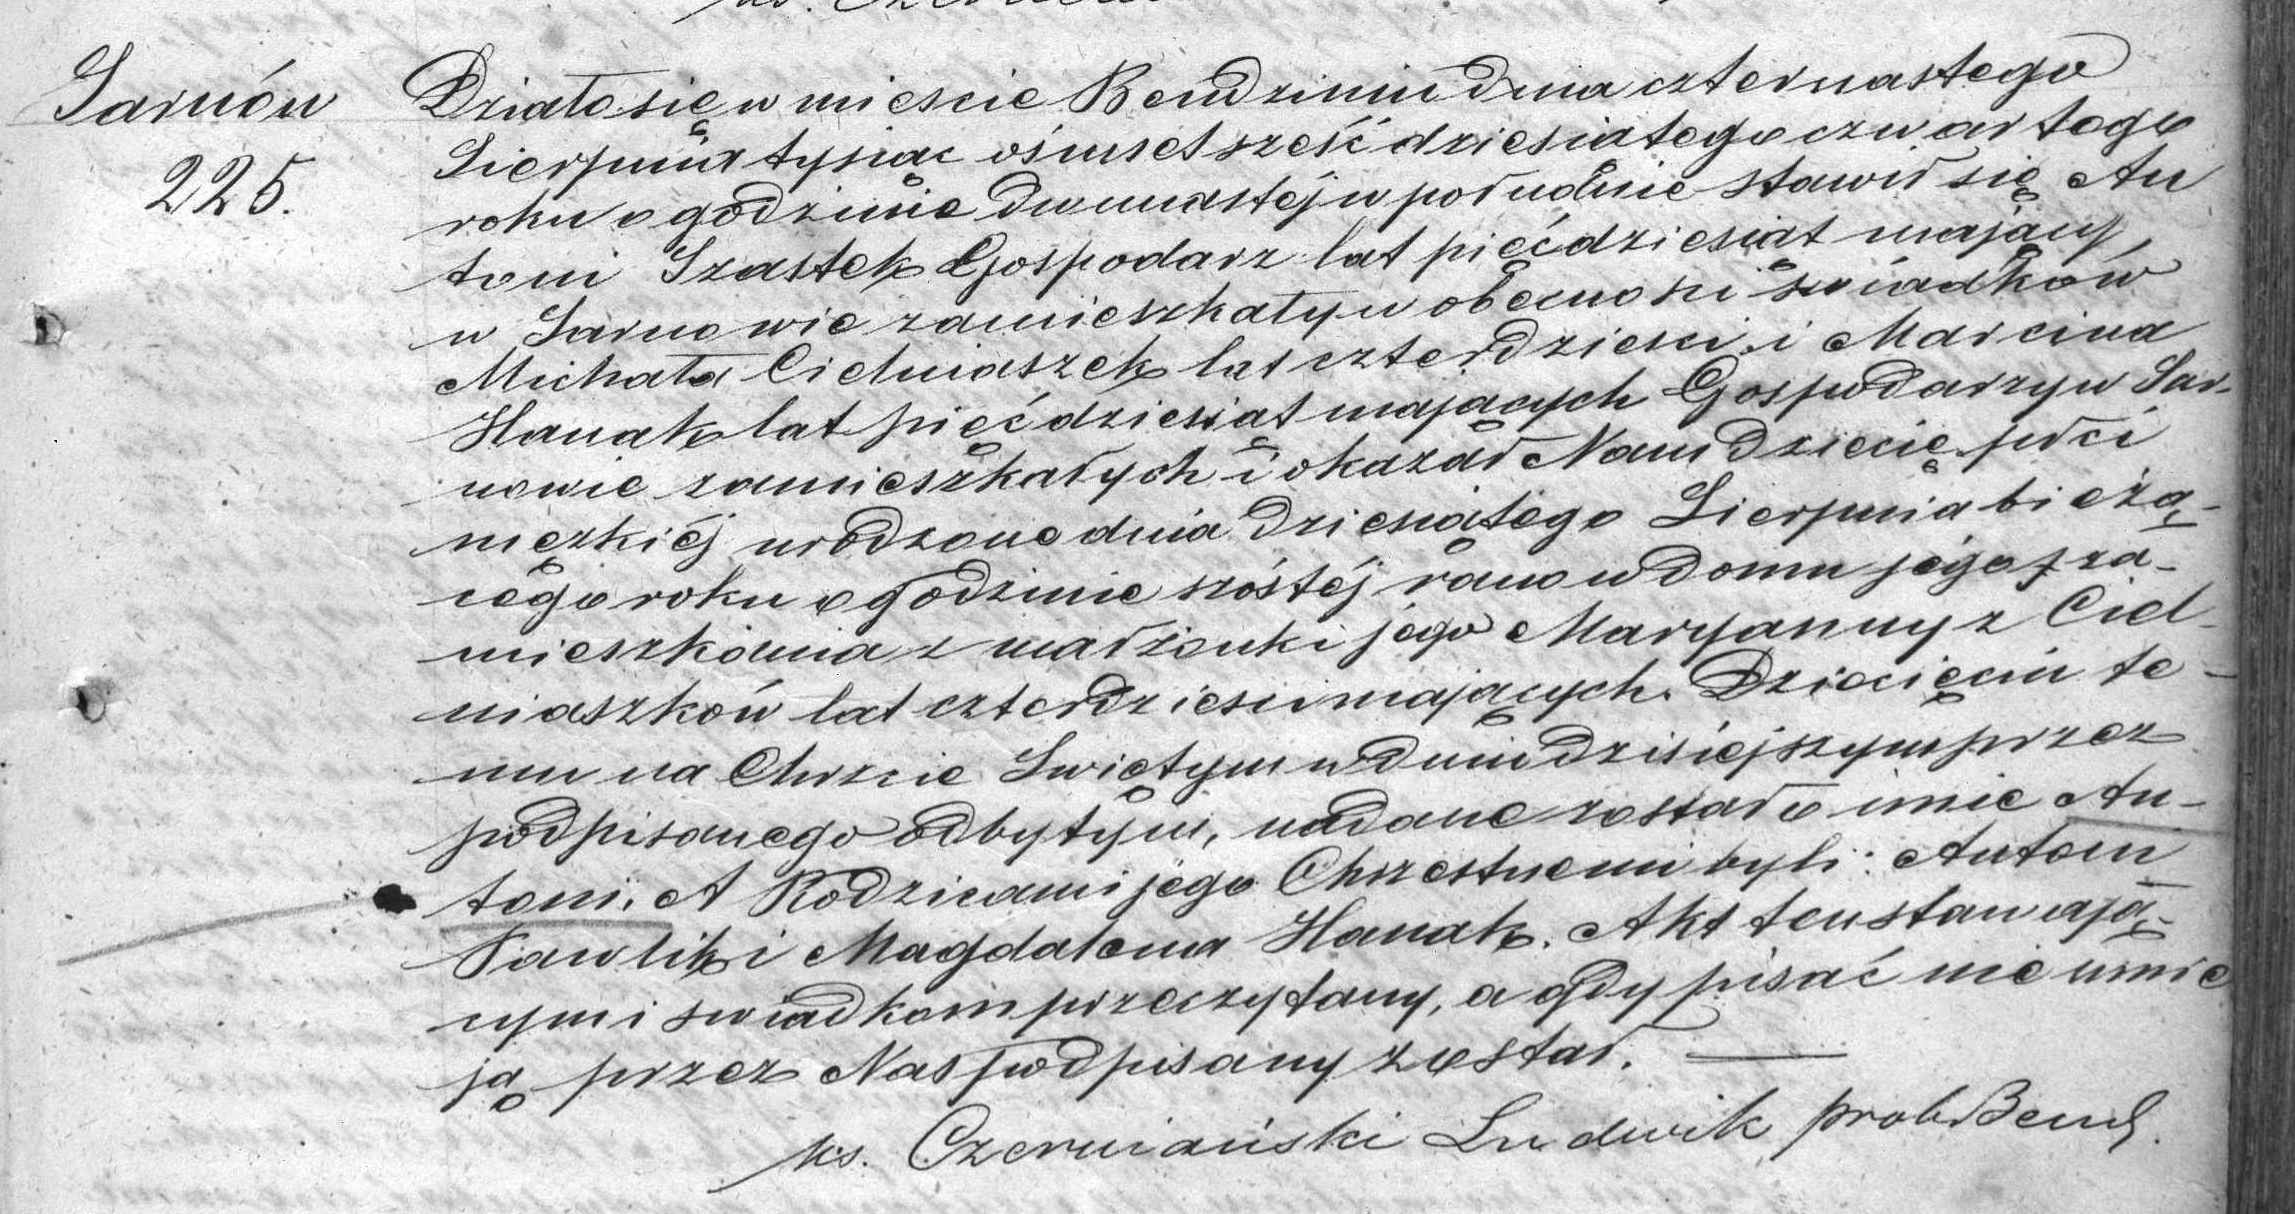 Sarnów
225.
Działo się w mieście Bendzinie dnia czternastego
Sierpnia tysiąc ośmset sześćdziesiątego czwartego
roku o godzinie dwunastéj w południe stawił się An
toni Szastek Gospodarz lat pięćdziesiat mający
w Sarnowie zamieszkały w obecności świadków
Michała Cielniaszek lat czterdzieści i Marcina
Hanak lat pięćdziesiat mających Gospodarzy w Sar-
nowie zamieszkałych i okazał Nam Dziecię płci
męzkiéj urodzone dnia dziesiątego Sierpnia bieżą-
cego roku o godzinie szóstéj rano w domu jego za-
mieszkania z małżonki jego Maryanny z Ciel-
niaszków lat czterdzieści mających. Dziecięciu te-
mu na Chrzcie Swiętym w dniu dzisiejszym przez
podpisanego odbytym, nadane zostało imie An-
toni. A Rodzicami jego Chrzestnemi byli: Antoni
Pawlik i Magdalena Hanak. Akt ten stawają-
cym i swiadkom przeczytany, a gdy pisać nie umie
ją przez Nas podpisany został.
ks. Czerwiański Ludwik prob Bend.